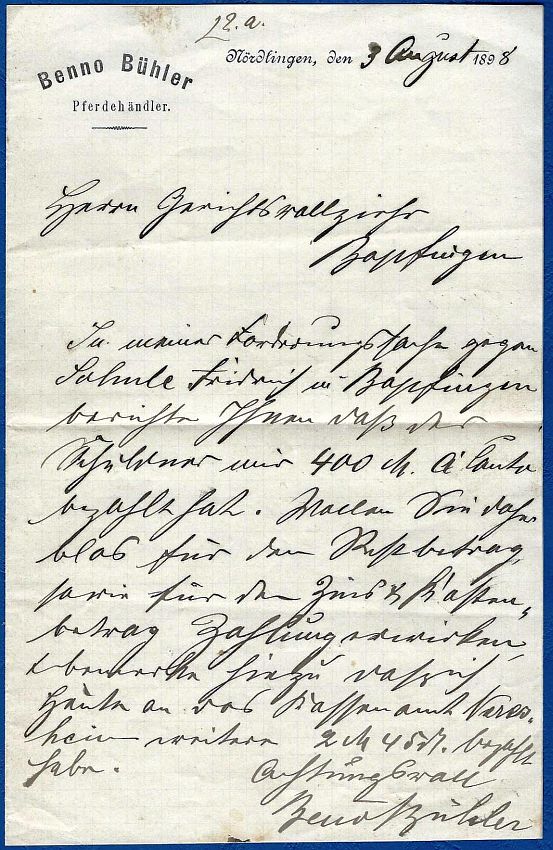 22.a.
Benno Bühler
Pferdehändler.
Nördlingen, den 3 August 1898
Herrn Gerichtsvollzieher
Bopfingen
In meiner Forderungssache gegen
Schule Fridrich in Bopfingen
berichte Ihnen daß der
Schuldner mir 400 M. á Conto
bezahlt hat. Wollen Sie daher
blos für den Restbetrag,
sowie für den Zins & Kosten-
betrag Zahlung erwirken,
& bemerke hiezu daß ich
heute an das Kassenamt Neres-
heim weitere 2 M 45 bezahlt
habe.
Achtungsvoll
Beno Bühler